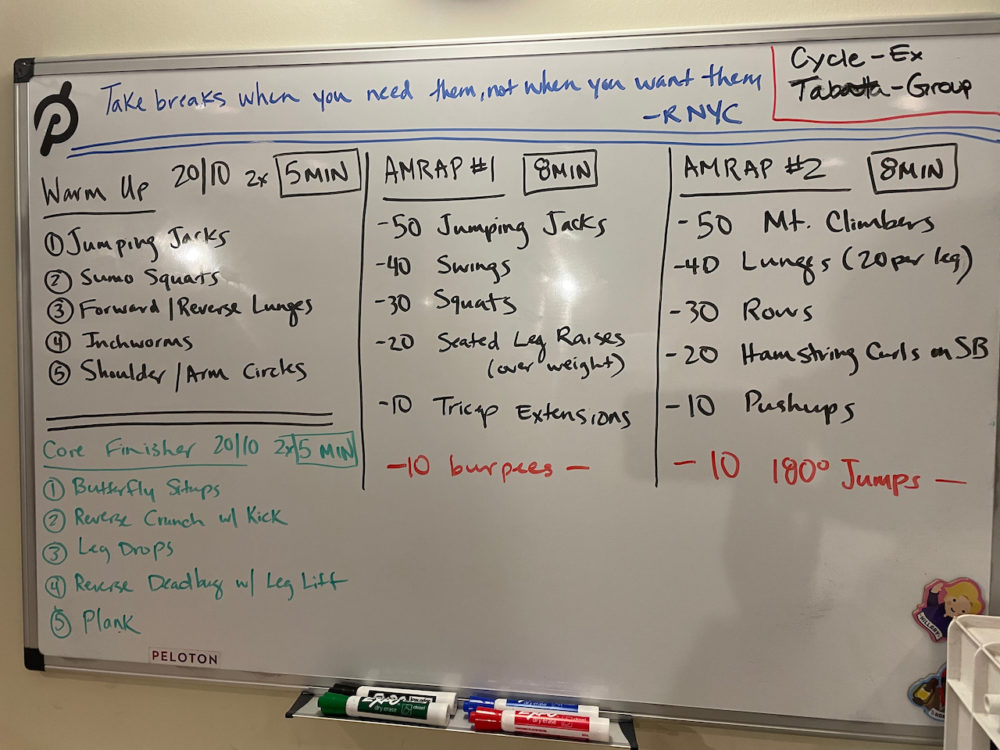 Take breaks when you need them, not when you want them
-RNYC
Cycle-Ex
Tabata-Group
Warm Up 20/10 2x 5 MIN
① Jumping Jacks
② Sumo Squats
③ Forward/Reverse Lunges
④ Inchworms
⑤ Shoulder/Arm Circles
Core Finisher 20/10 2x 5 MIN
① Butterfly Situps
② Reverse Crunch w/ Kick
③ Leg Drops
④ Reverse Deadbug w/ Leg Lift
⑤ Plank
AMRAP #1 8MIN
-50 Jumping Jacks
-40 Swings
-30 Squats
-20 Seated Leg Raises
(over weight)
-10 Tricep Extensions
-10 burpees -
AMRAP #2 8MIN
-50 Mt. Climbers
-40 Lunges (20 per leg)
-30 Rows
-20 Hamstring Curls on SB
-10 Pushups
-10 180° Jumps -
PELOTON
HILLARY
EXPO
dry erase
EXPO
dry erase